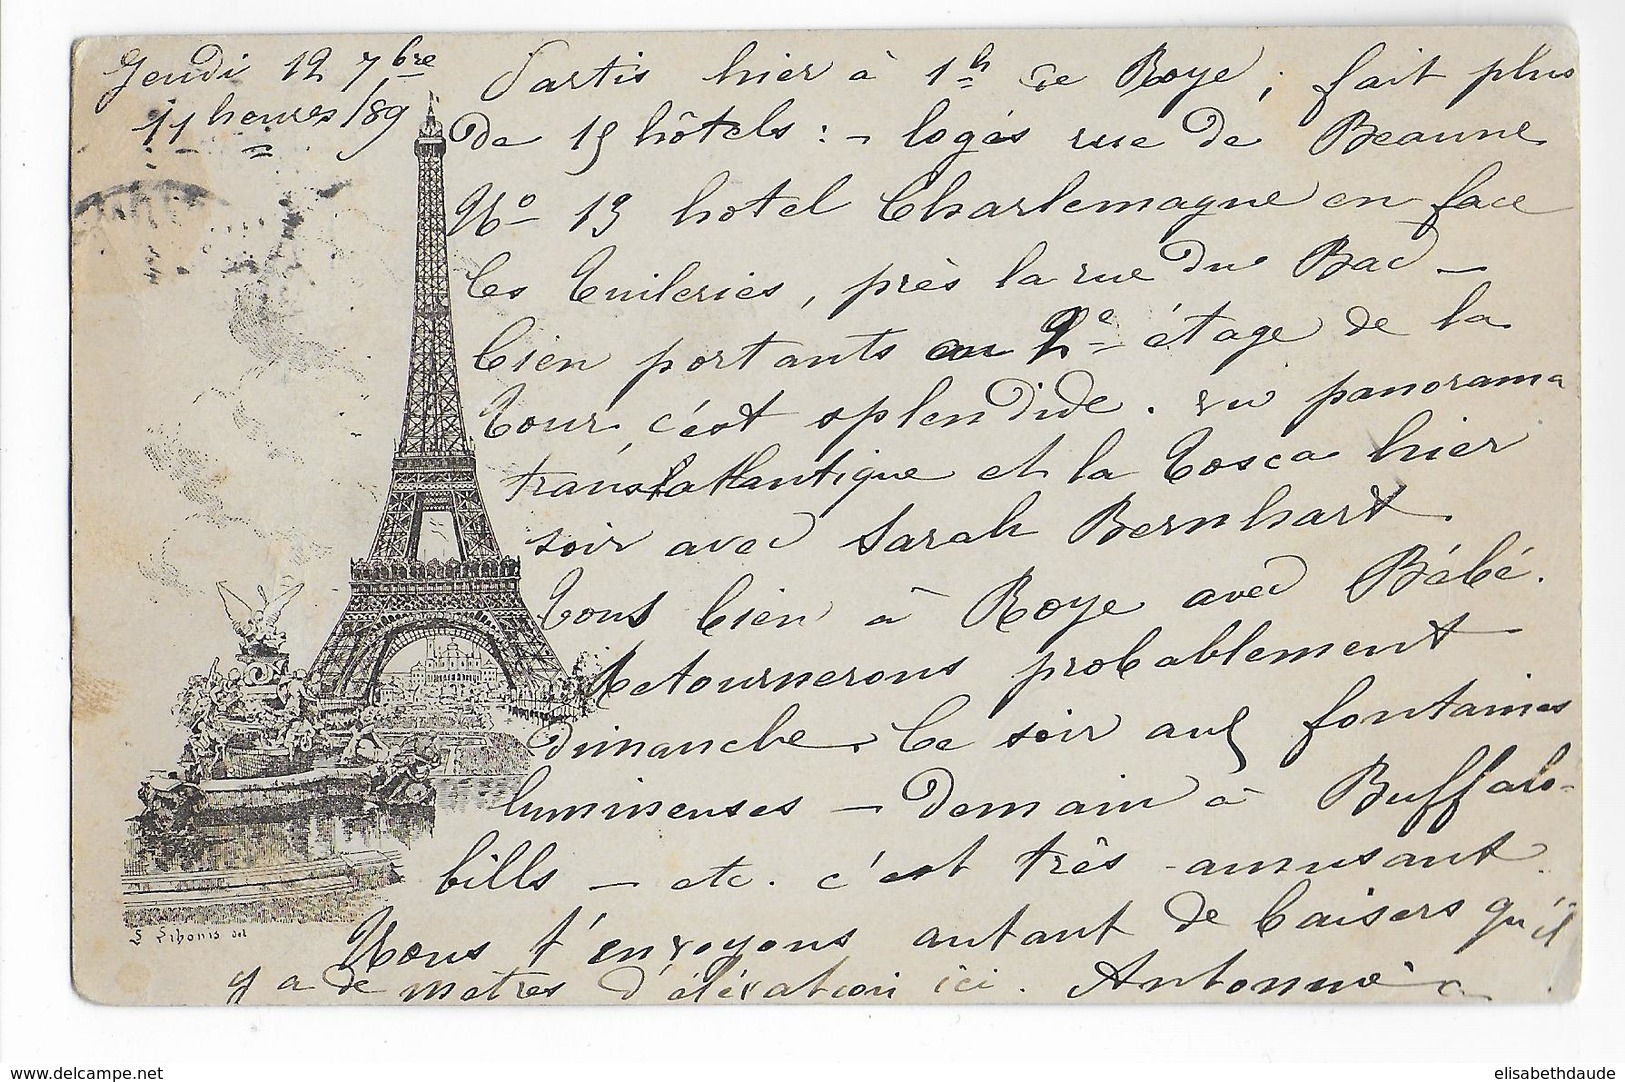 Jeudi 12 7bre
11 heures /89
Partis hier à 1h de Roye, fait plus
de 15 hôtels : - logés rue de Beaune
No 13 hotel Charlemagne en face
les Tuileries, près la rue du Bac -
bien portants au 2e étage de la
Tour, c'est splendide. vu panorama
transatlantique et la Tosca hier
soir avec Sarah Bernhart.
Tous bien à Roye avec Bébé.
Retournerons probablement
dimanche. Ce soir aux fontaines
lumineuses - demain à Buffalo-
bills - etc. c'est très amusant.
Nous t'envoyons autant de baisers qu'il
y a de mètres d'élévation ici.
S Libonis del
elisabethdaude
www.delcampe.net